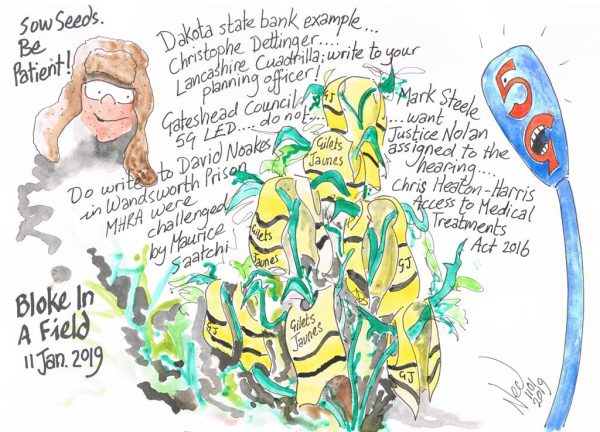 Sow Seeds.
Be
Patient!
Dakota state bank example...
Christophe Dettinger....
Lancashire Cuadrilla; write to your
planning officer!
Gateshead Council
5G LED.... do not..... want
Mark Steele
Justice Nolan
assigned to the
hearing....
Do write to David Noakes
in Wandsworth Prison
MHRA were
challenged
by Maurice
Saatchi
Chris Heaton-Harris
Access to Medical
Treatments
Act 2016
5G
GJ
Gilets
Jaunes
Gilets
Jaunes
GJ
Gilets
Jaunes
GJ
GJ
Bloke In
A Field
11 Jan. 2019
1101
2019